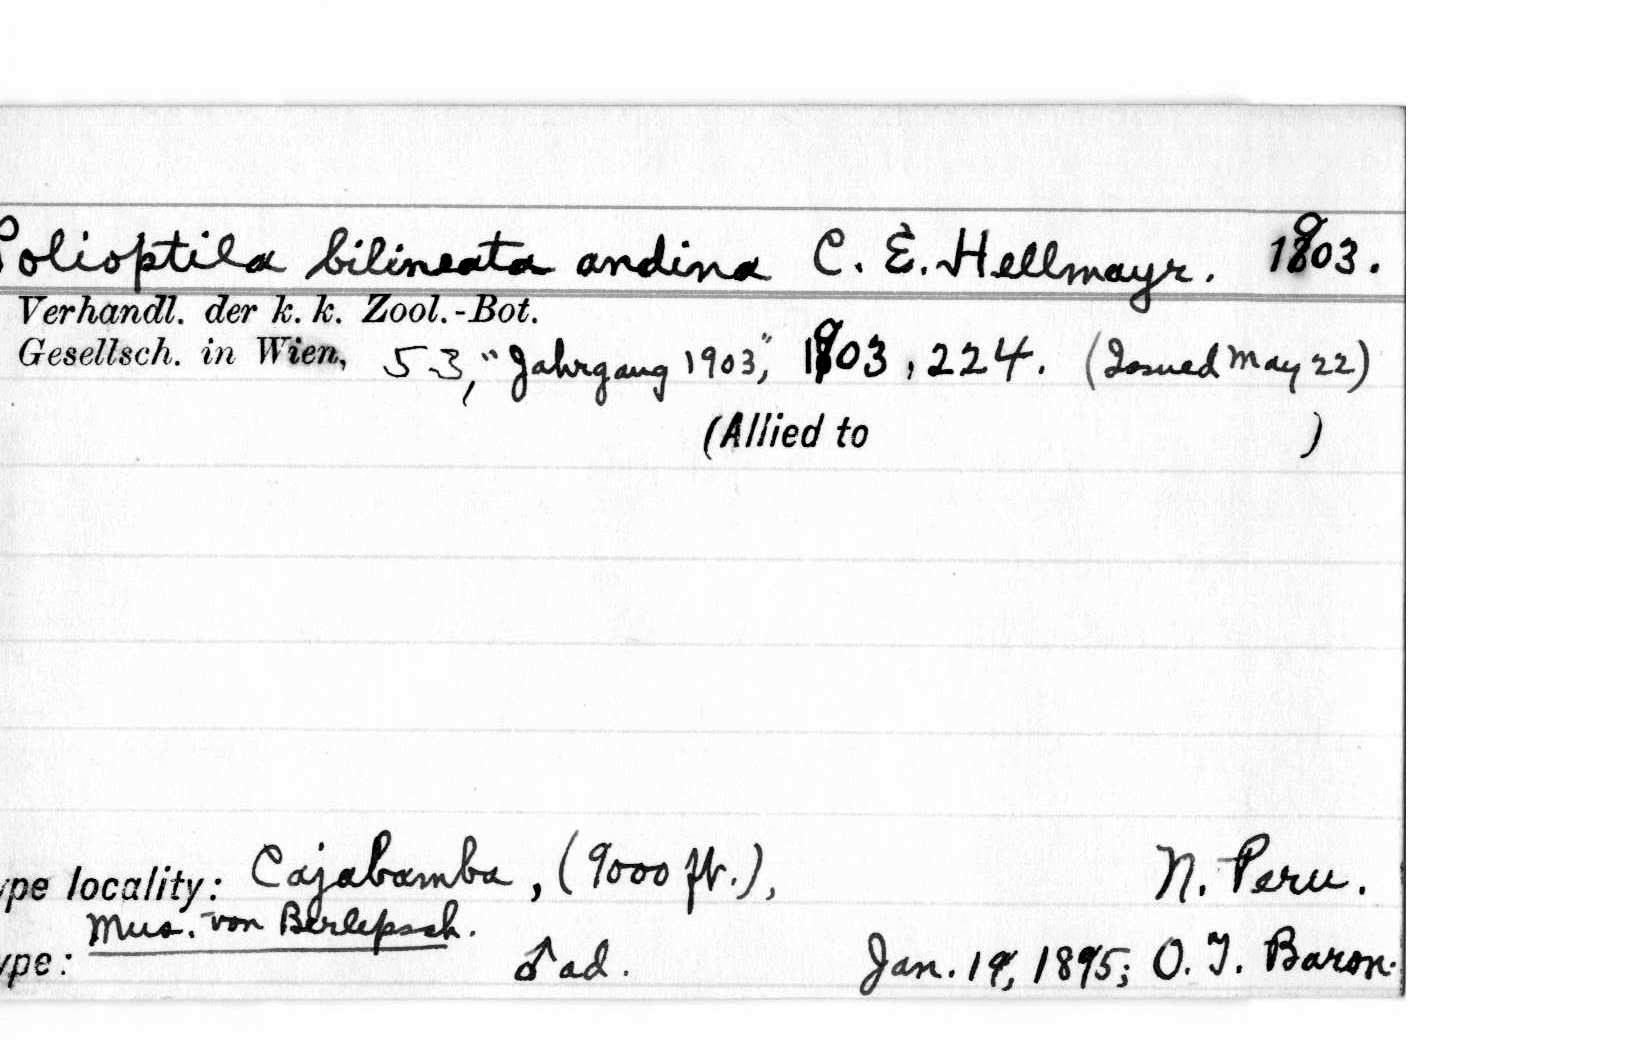 Polioptila bilineata andina C. E. Hellmayr. 1903.
Verhandl. der k. k. Zool.-Bot.
Gesellsch. in Wien, 53, "Jahrgang 1903," 1903, 224. (Issued May 22)
(Allied to )
ype locality: Cajabamba, (9000 ft.), N. Peru.
Mus. von Berlepsch.
ype: ♂ ad. Jan. 19, 1895; O. T. Baron.